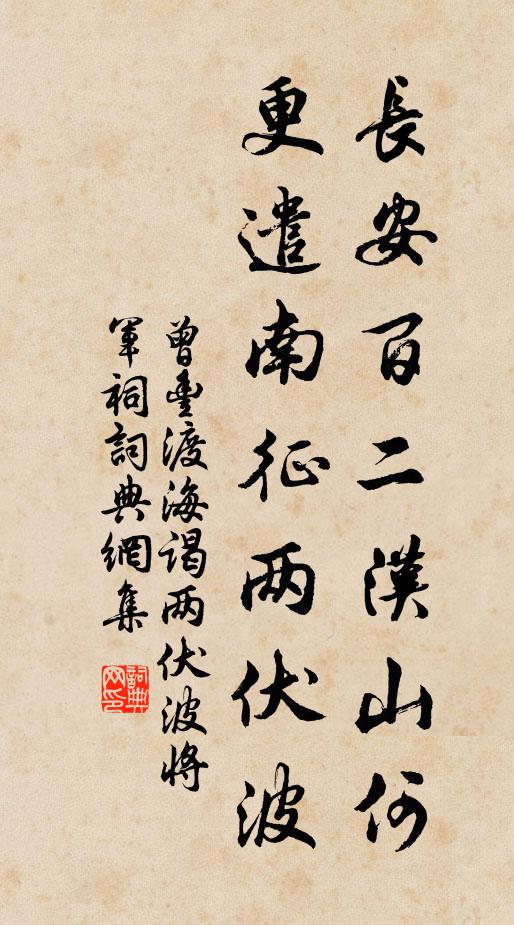 長安百二漢山何
更遣南征两伏波
曾豐渡海謁两伏波將
軍祠詞典網集
詞典网印